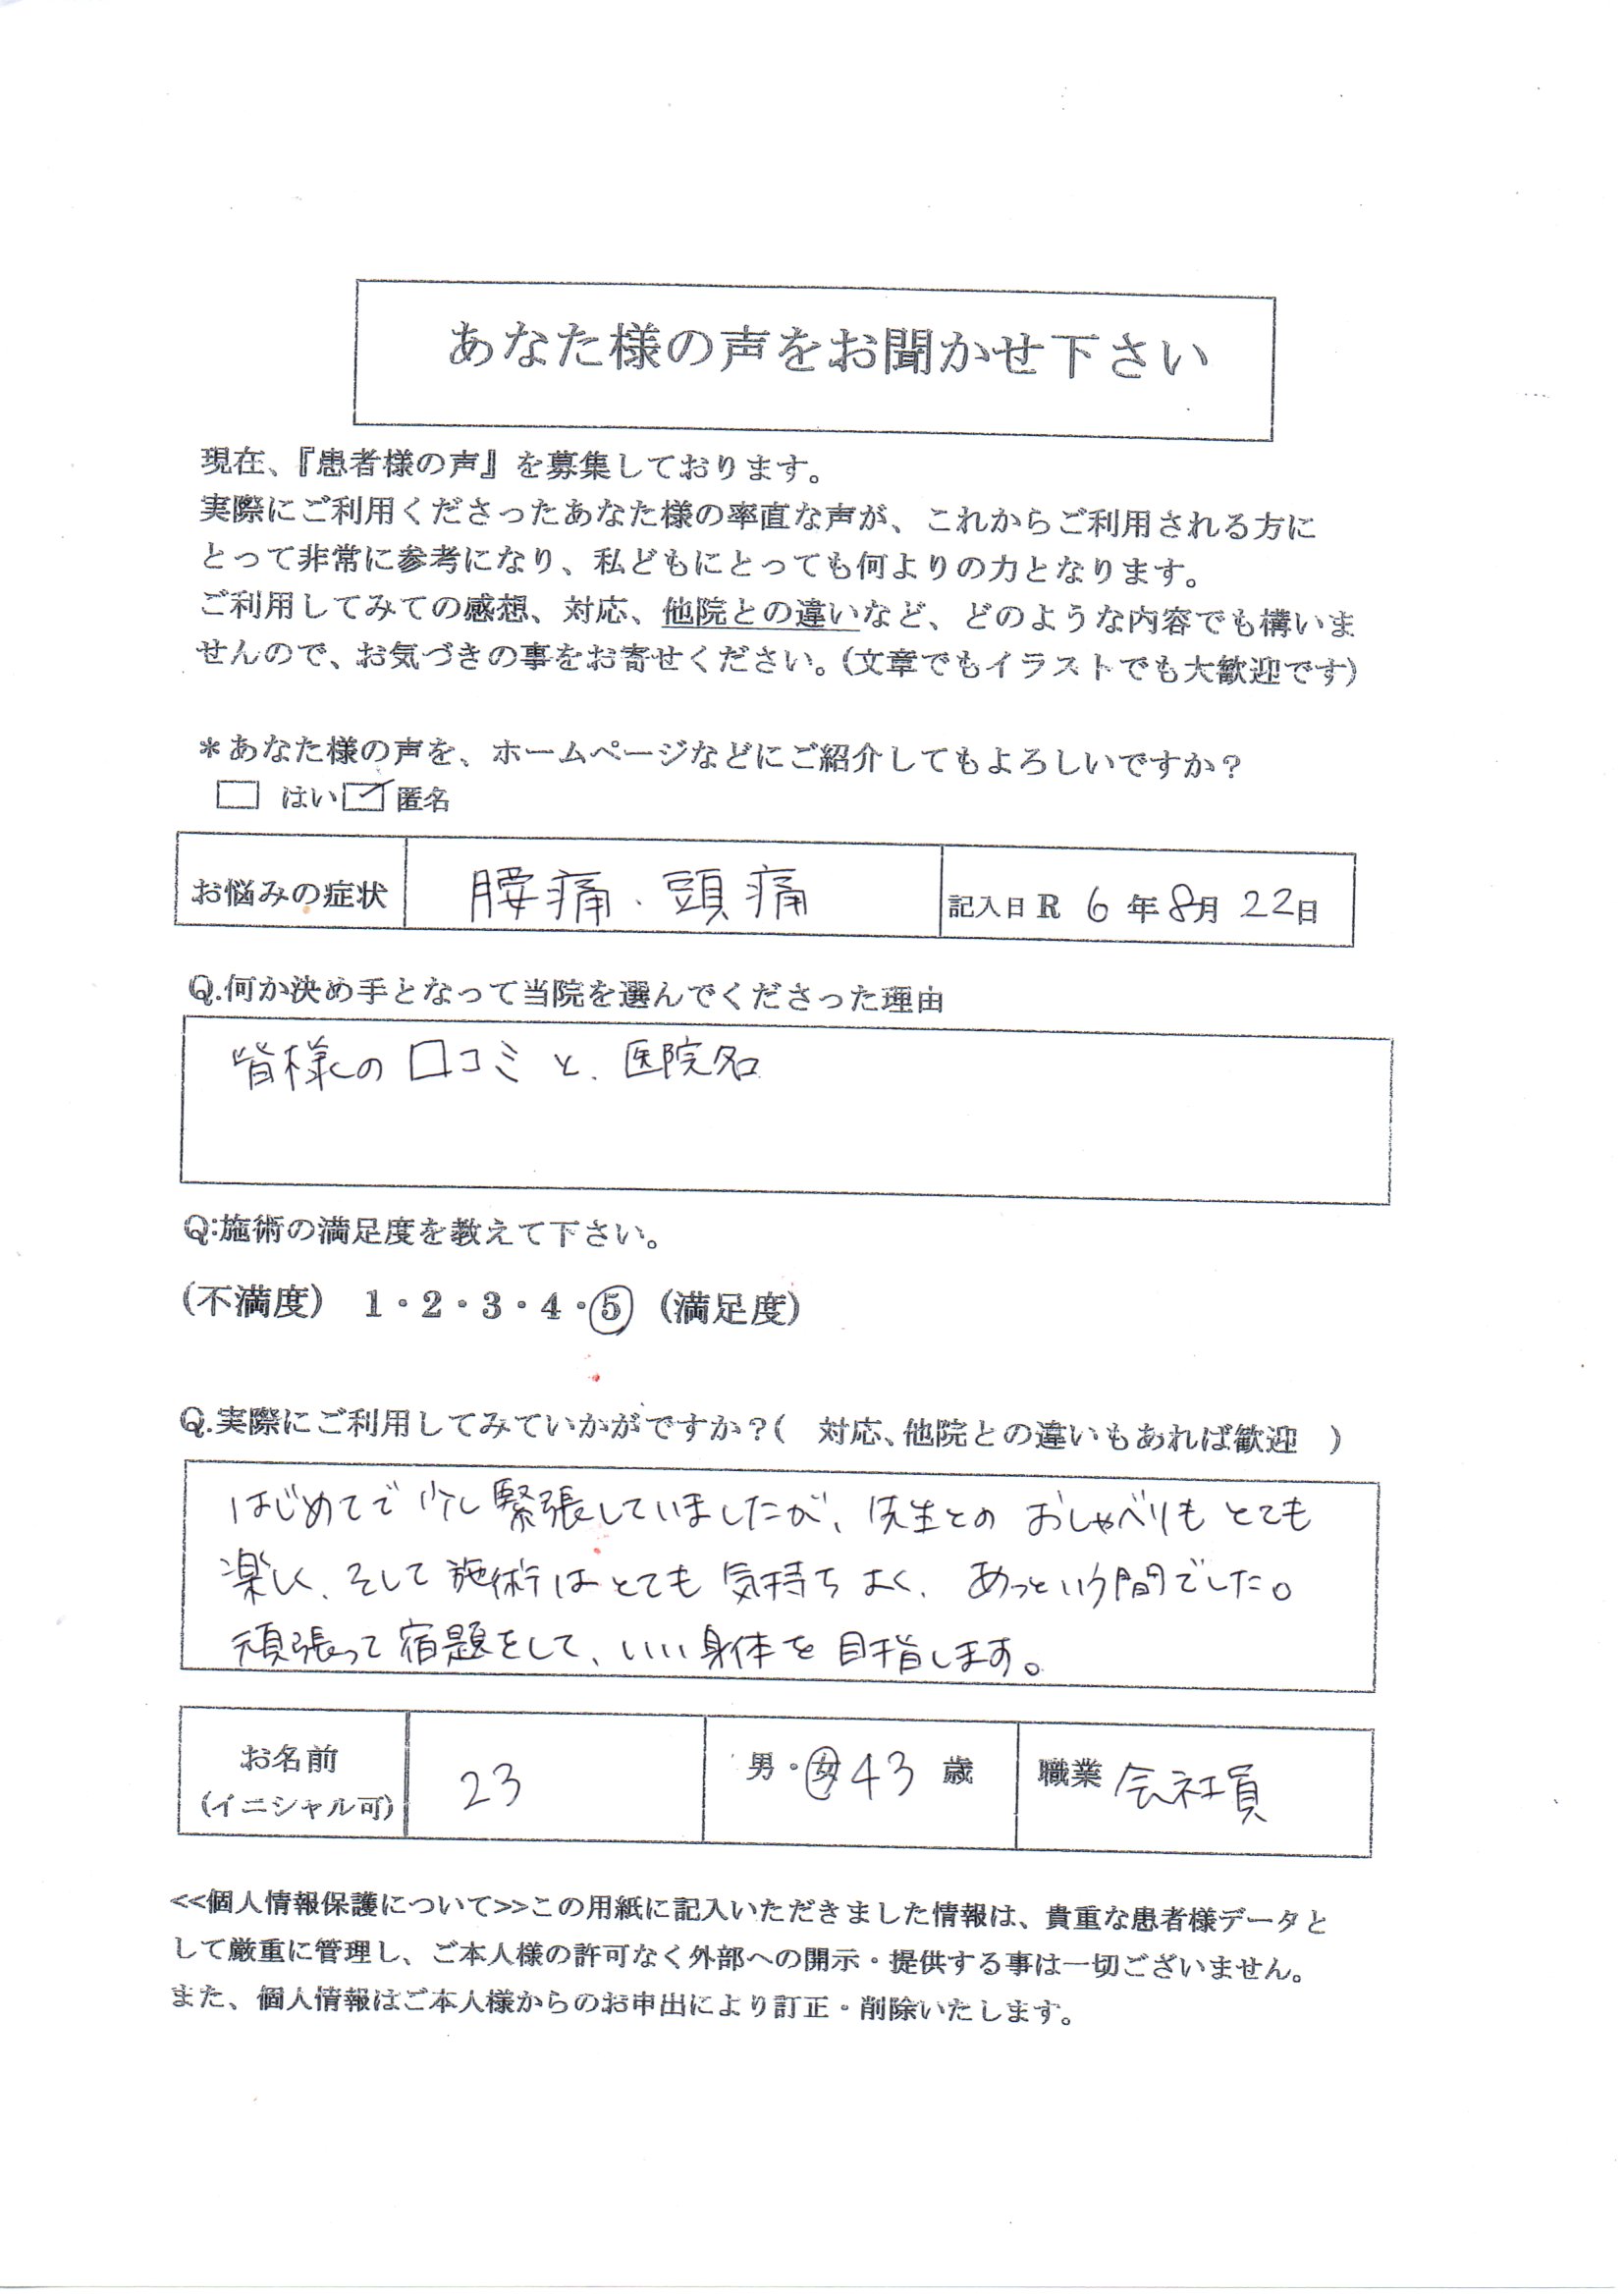 あなた様の声をお聞かせ下さい
現在、『患者様の声』を募集しております。
実際にご利用くださったあなた様の率直な声が、これからご利用される方に
とって非常に参考になり、私どもにとっても何よりの力となります。
ご利用してみての感想、対応、他院との違いなど、どのような内容でも構いま
せんので、お気づきの事をお寄せください。(文章でもイラストでも大歓迎です)
*あなた様の声を、ホームページなどにご紹介してもよろしいですか?
□ はい ☑ 匿名
お悩みの症状 腰痛・頭痛 記入日 R 6 年 8月 22日
Q.何か決め手となって当院を選んでくださった理由
皆様の口コミと、医院名
Q:施術の満足度を教えて下さい。
(不満度) 1・2・3・4・⑤ (満足度)
Q.実際にご利用してみていかがですか?( 対応、他院との違いもあれば歓迎 )
はじめてで少し緊張していましたが、先生とのおしゃべりもとても
楽しく、そして施術はとても気持ちよく、あっという間でした。
頑張って宿題をして、いい身体を目指します。
お名前 23 男・女 43 歳 職業 会社員
(イニシャル可)
<<個人情報保護について>>この用紙に記入いただきました情報は、貴重な患者様データと
して厳重に管理し、ご本人様の許可なく外部への開示・提供する事は一切ございません。
また、個人情報はご本人様からのお申出により訂正・削除いたします。